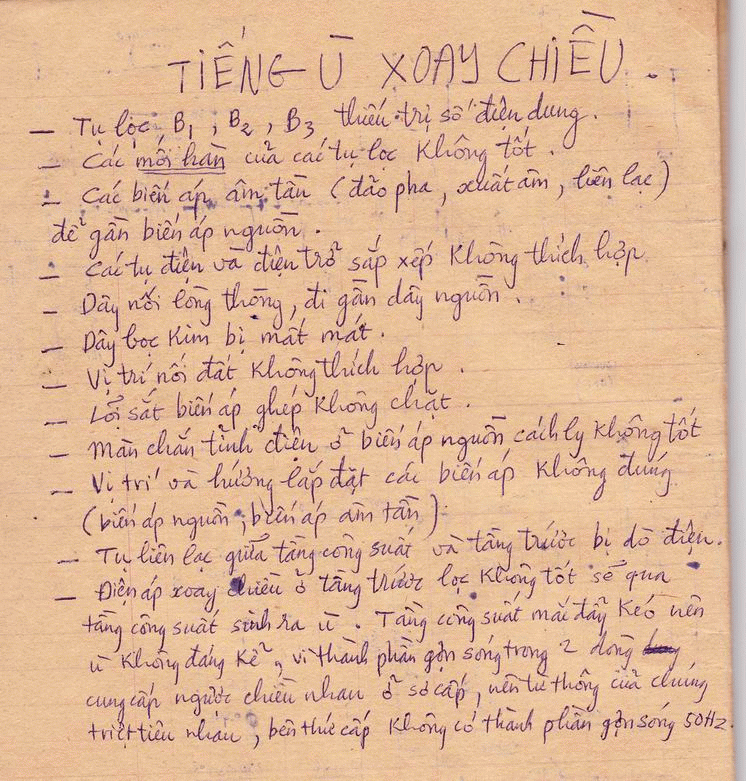 TIẾNG Ù XOAY CHIỀU.
— Tụ lọc B1, B2, B3 thiếu trị số điện dung.
— Các mối hàn của các tụ lọc không tốt.
— Các biến áp âm tần (đảo pha, xuất âm, liên lạc)
để gần biến áp nguồn.
— Các tụ điện và điện trở sắp xếp không thích hợp
— Dây nối lòng thòng, đi gần dây nguồn.
— Dây bọc kim bị mất mát.
— Vị trí nối đất không thích hợp.
— Lõi sắt biến áp ghép không chặt.
— Màn chắn tĩnh điện ở biến áp nguồn cách ly không tốt
— Vị trí và hướng lắp đặt các biến áp không đúng
(biến áp nguồn, biến áp âm tần)
— Tụ liên lạc giữa tầng công suất và tầng trước bị dò điện.
— Điện áp xoay chiều ở tầng trước lọc không tốt sẽ qua
tầng công suất sinh ra ù. Tầng công suất mắc đẩy kéo nên
ù không đáng kể, vì thành phần gợn sóng trong 2 dòng
cung cấp ngược chiều nhau ở sơ cấp, nên từ thông của chúng
triệt tiêu nhau, bên thứ cấp không có thành phần gợn sóng 50Hz.